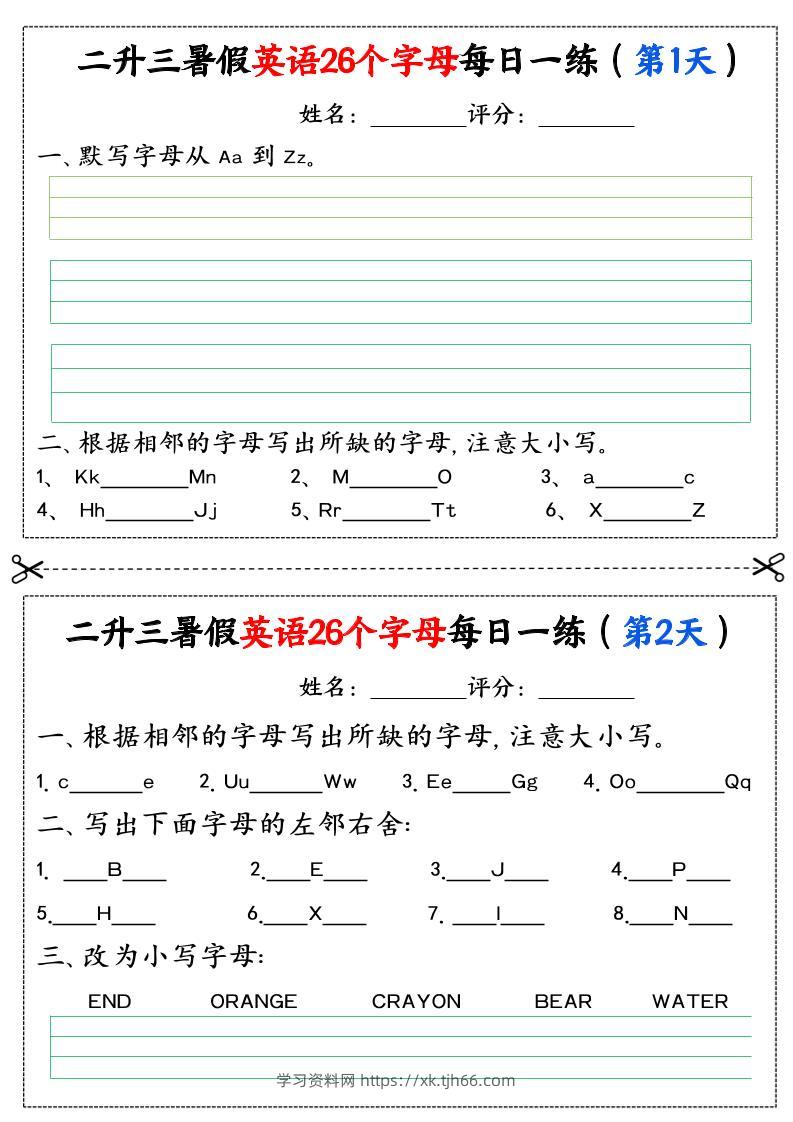 二升三暑假英语26个字母每日一练(第1天)
姓名:________评分:________
一、默写字母从 Aa 到 Zz。
二、根据相邻的字母写出所缺的字母,注意大小写。
1、 Kk________Mn 2、 M________O 3、 a________c
4、 Hh________Jj 5、Rr________Tt 6、 X________Z
二升三暑假英语26个字母每日一练(第2天)
姓名:________评分:________
一、根据相邻的字母写出所缺的字母,注意大小写。
1. c_______e 2. Uu_______Ww 3. Ee_____Gg 4. Oo________Qq
二、写出下面字母的左邻右舍:
1. ____B____ 2.____E____ 3.____J____ 4.____P____
5.____H____ 6.____X____ 7. ____I____ 8.____N____
三、改为小写字母:
END ORANGE CRAYON BEAR WATER
学习资料网 https://xk.tjh66.com